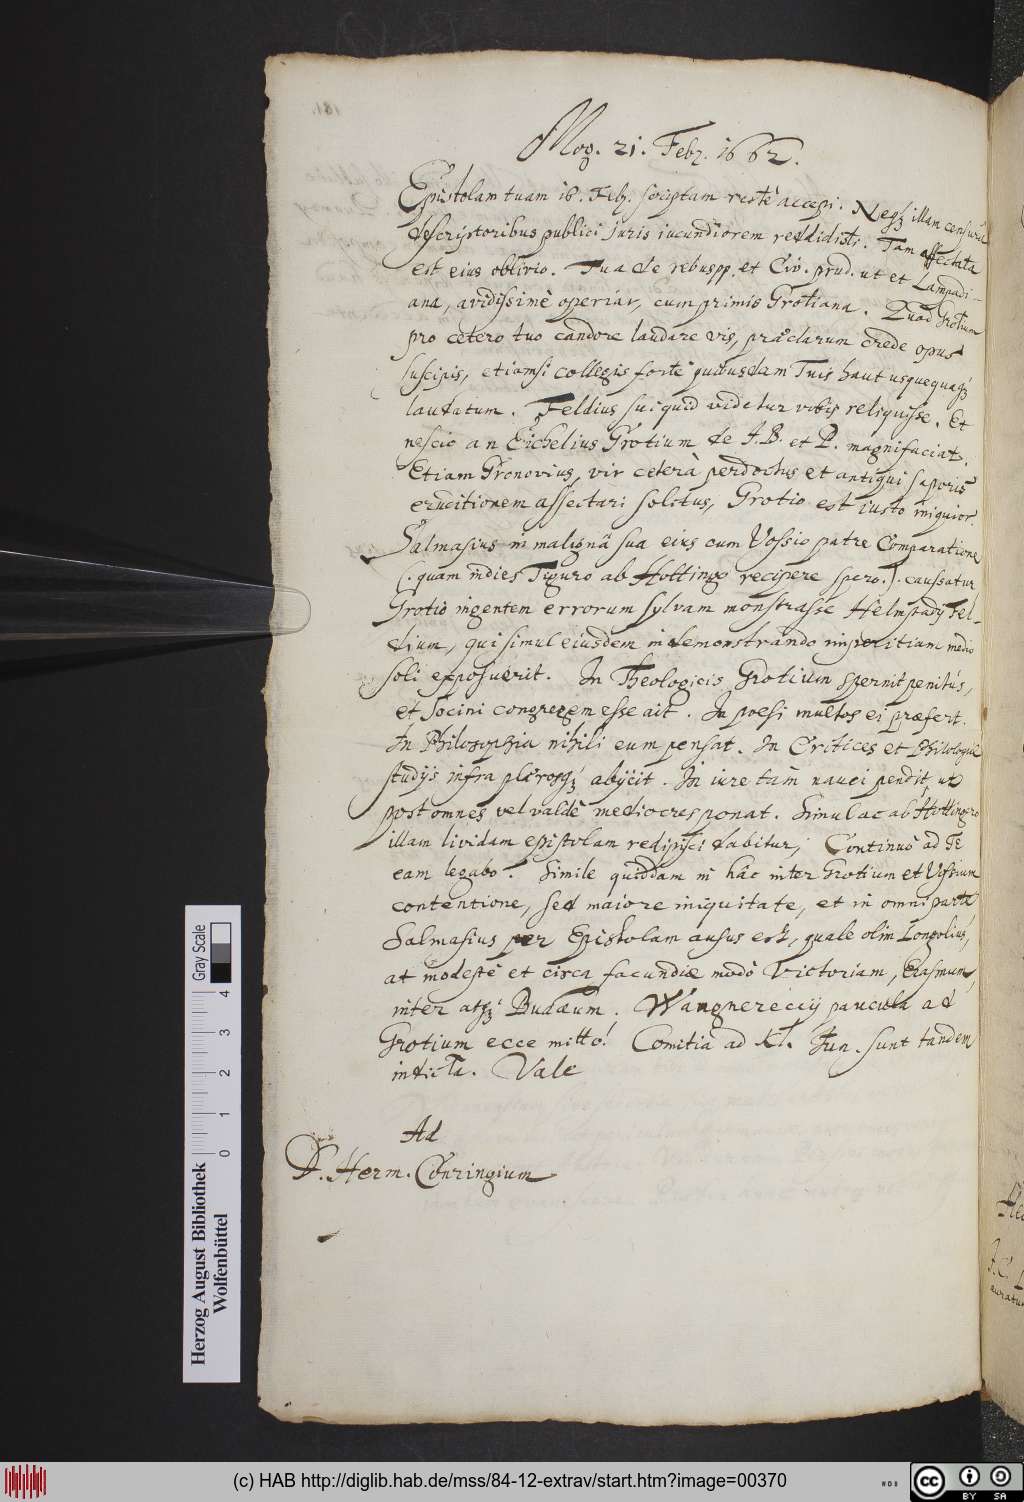 Mog. 21. Febr. 1662.
Epistolam tuam 16. Feb. scriptam rectè accepi. Negꝫ illam censurâ
descriptoribus publici Juris iucundiorem reddidisti. Tam affectata
est eius oblivio. Tua de rebuspp. et Civ. prud. ut et Lampadi-
ana, avidissimè operiar, cum primis Grotiana. Quod Grotium
pro cetero tuo candore laudare vis, præclarum crede opus
suscipis, etiamsi collegis fortè quibusdam Tuis haut usquequaqꝫ
laudatum. Feldius sui quid videtur vobis reliquisse. Et
nescio an Eichelius Grotium de J. B. et P. magnifaciat.
Etiam Gronovius, vir ceterà perdoctus et antiqui saporis
eruditionem affectari solitus, Grotio est iusto iniquior.
Salmasius in malignâ sua eius cum Vossio patre Comparatione
(. quam indies Tiguro ab Hottingo recipere spero.). caussatur
Grotio ingentem errorum sylvam monstrasse Helmstadij Fel-
dium, qui simul eiusdem in demonstrando imperitiam medio
soli exposuerit. In Theologicis Grotium spernit penitus,
et Socini congregem esse ait. In poesi multos ei præfert.
In Philosophia nihili eum pensat. In Critices et Philologiæ
studijs infra plerosqꝫ abijcit. In iure tàm nauci pendit, ut
post omnes vel valdè mediocres ponat. Simul ac ab Hottingero
illam lividam epistolam redipisci dabitur, Continuò ad Te
eam legabo. Simile quiddam in hâc inter Grotium et Vossium
contentione, sed maiore iniquitate, et in omni parte
Salmasius per Epistolam ausus est, quale olim Longolius,
at modestè et circa facundiæ modò victoriam, Erasmum
inter atqꝫ Budæum. Wangnereccij paucula ad
Grotium ecce mitto! Comitia ad Kl. Jun. sunt tandem
indicta. Vale
Ad
D. Herm. Conringium
Herzog August Bibliothek
Wolfenbüttel
0 1 2 3 4
Gray Scale
(c) HAB http://diglib.hab.de/mss/84-12-extrav/start.htm?image=00370
cc BY SA